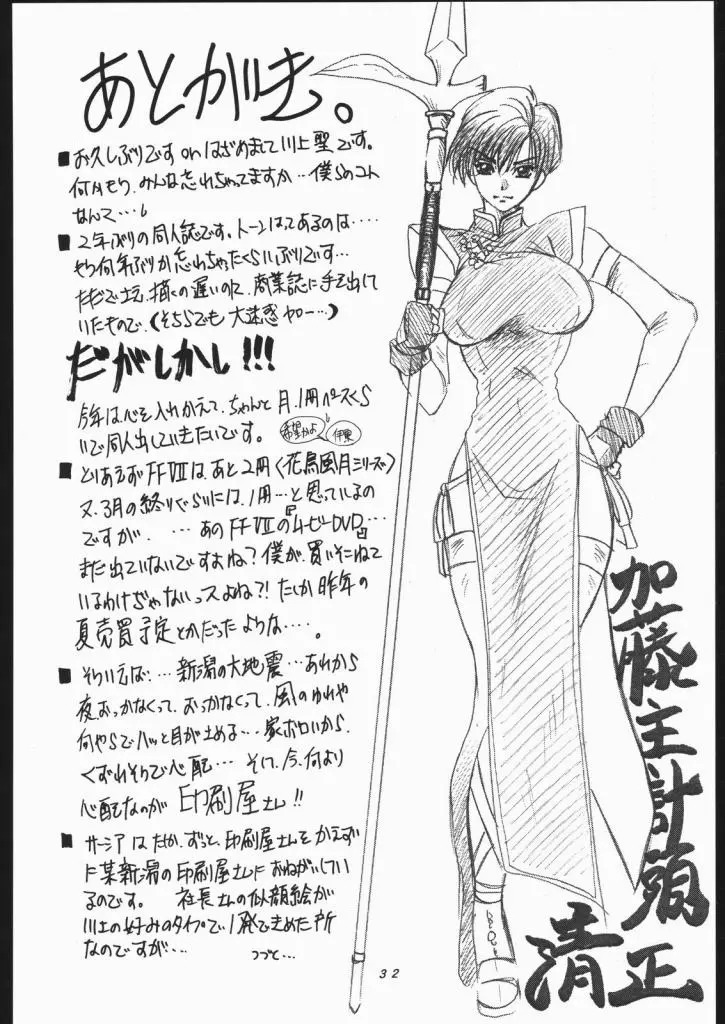 あとがき。
■お久しぶりです orはじめまして川上聖です。
何人もり、みんな忘れちゃってますか…僕らのコト
なんて…。
■2年ぶりの同人誌です。トーンはってあるのは‥‥
やつ何年ぶりか忘れちゃったくらいぶりです…
ただでさえ、描くの遅いのに、商業誌に手を出して
いたもので、(そちらでも大迷惑ヤロー…)
だがしかし!!!
今年は心を入れかえて、ちゃんと月、1冊ペースくら
いで同人出していきたいです。
希望かよ
伊東
■とりあえずFFⅦは、あと2冊〈花鳥風月シリーズ〉
又、3月の終りぐらいには、1冊…と思っているの
ですが、…あのFFⅦの『ムービーDVD』…
まだ出ていないですよね?僕が、買いそこねて
いるわけぢゃないっスよね?!たしか昨年の
夏売買予定とかだったような‥‥。
■そういえば:…新潟の大地震…あれから
夜、おっかなくって、おっかなくって、風のゆれや
何やらでハッと目が止める…家ボロいから、
くずれそうで心配…そして、今、何より
心配なのが 印刷屋さん!!
■サーシアは たしか、ずっと、印刷屋さんをかえず
に某新潟の印刷屋さんに おねがいしてい
るのです。 社長さんの似顔絵が
川上の好みのタイプで、1発できめた所
なのですが…
つづく…
32
加藤主計頭
清正